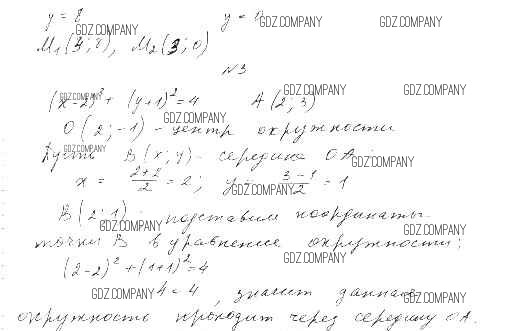 y = 8 y = 0
GDZ.COMPANY GDZ.COMPANY GDZ.COMPANY
M₁(3; 8), M₂(3; 0)
N3
(x-2)² + (y+1)² = 4 A(2; 3)
GDZ.COMPANY GDZ.COMPANY GDZ.COMPANY
GDZ.COMPANY
O(2; -1) - центр окружности
Пусть B(x; y) - середина OA:
GDZ.COMPANY GDZ.COMPANY
x = (2+2)/2 = 2; y = (3-1)/2 = 1
GDZ.COMPANY
B(2; 1) подставим координаты
GDZ.COMPANY GDZ.COMPANY
точки B в уравнение окружности:
(2-2)² + (1+1)² = 4
GDZ.COMPANY
4 = 4, значит данная
GDZ.COMPANY GDZ.COMPANY
окружность проходит через середину OA.